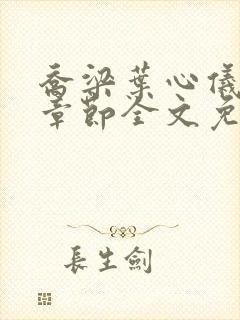 乔梁葉心儀
章節全文免
長生劍